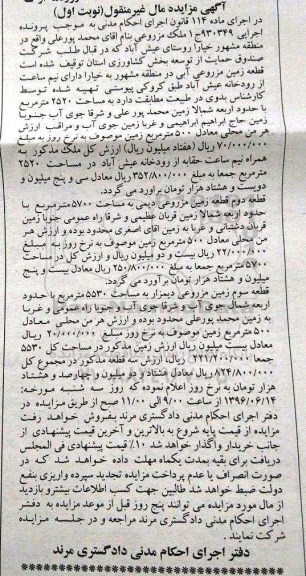 آگهی مزایده مال غیرمنقول(نوبت اول)
در اجرای ماده ۱۱۴ قانون اجرای احکام مدنی به موجب پرونده
اجرایی ۹۳۰۳۴۹ج۱ ملک مزروعی بنام آقای محمد پورعلی واقع در
منطقه مشهور خیارا روستای عیش آباد که در قبال طلب شرکت
صندوق حمایت از توسعه بخش کشاورزی استان توقیف شده است
قطعه زمین مزروعی آبی در منطقه مشهور به خیارا دارای نیم ساعت
از رودخانه عیش آباد طبق کروکی پیوستی تهیه شده توسط
کارشناس بدوی در طبیعت مطابقت دارد به مساحت ۲۵۲۰ مترمربع
با حدود اربعه شمالا زمین محمد پور علی و شرقا جوی آب جنوبا
زمین حاج ابراهیم ابراهیمی و غربا زمین جوی آب و مراقب ارزش
هر من محلی معادل ۵۰۰ مترمربع زمین موصوف به نرخ روز به مبلغ
۷۰/۰۰۰/۰۰۰ (هفتاد میلیون ریال) ارزش کل ملک مذکور به
همراه نیم ساعت حقابه از رودخانه عیش آباد در مساحت ۲۵۲۰
مترمربع جمعا به مبلغ ۳۵۲/۸۰۰/۰۰۰ ریال معادل سی و پنج میلیون و
دویست و هشتاد هزار تومان برآورد می گردد.
قطعه دوم قطعه زمین مزروعی دیمی به مساحت ۵۷۰۰ مترمربع با
حدود اربعه شمالا زمین قربان عظیمی و شرقا راه عمومی جنوبا زمین
قربان دشتانی و غربا به زمین آقای اصغری محدود بوده و ارزش هر
من محلی معادل ۵۰۰ مترمربع زمین موصوف به نرخ روز به مبلغ
۲۲/۰۰۰/۰۰۰ ریال بیست و دو میلیون ریال و ارزش کل در مساحت
۵۷۰۰ مترمربع جمعا به مبلغ ۲۵۰/۸۰۰/۰۰۰ ریال معادل بیست و پنج
میلیون و هشتاد هزار تومان برآورد می گردد.
قطعه سوم زمین مزروعی دیمزار به مساحت ۵۵۳۰ مترمربع با حدود
اربعه شمال جوی آب و شرقا جوی آب و جنوبا راه عمومی و غربا
به زمین محمد پورعلی محدود بوده و ارزش هر من محلی معادل
۵۰۰ مترمربع زمین موصوف به نرخ روز مبلغ ۲۰/۰۰۰/۰۰۰ ریال
معادل بیست میلیون ریال ارزش زمین مذکور در مساحت کل ۵۵۳۰
جمعا ۲۲۱/۲۰۰/۰۰۰ ریال، ارزش سه قطعه مذکور در مجموع کل
۸۲۴/۸۰۰/۰۰۰ ریال معادل هشتاد و دو میلیون و چهارصد و هشتاد
هزار تومان به نرخ روز اعلام نموده که روز سه شنبه مورخه:
۱۳۹۶/۰۶/۱۴ از ساعت ۹/۰۰ الی ۱۱/۰۰ صبح از طریق مزایده در
دفتر اجرای احکام مدنی دادگستری مرند بفروش خواهد رفت
مزایده از قیمت پایه شروع به بالاترین و آخرین قیمت پیشنهادی از
جانب خریدار واگذار خواهد شد ۱۰٪ قیمت پیشنهادی فی المجلس
دریافت برای بقیه بمدت یکماه مهلت داده خواهد شد که در
صورت انصراف یا عدم پرداخت مزایده تجدید،سپرده واریزی بنفع
دولت ضبط خواهد شد طالبین جهت کسب اطلاعات بیشتر و بازدید
از مال مورد مزایده می توانند پنج روز قبل از موعد مزایده به دفتر
اجرای احکام مدنی دادگستری مرند مراجعه و در جلسه مزایده
شرکت نمایند.
دفتر اجرای احکام مدنی دادگستری مرند